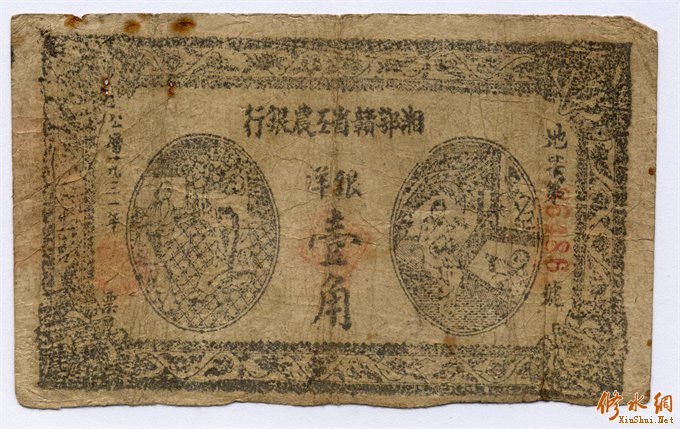 湘鄂赣省工農银行
銀洋
壹角
地字第
號
公曆一九三一年
修水網
XiuShui.Net